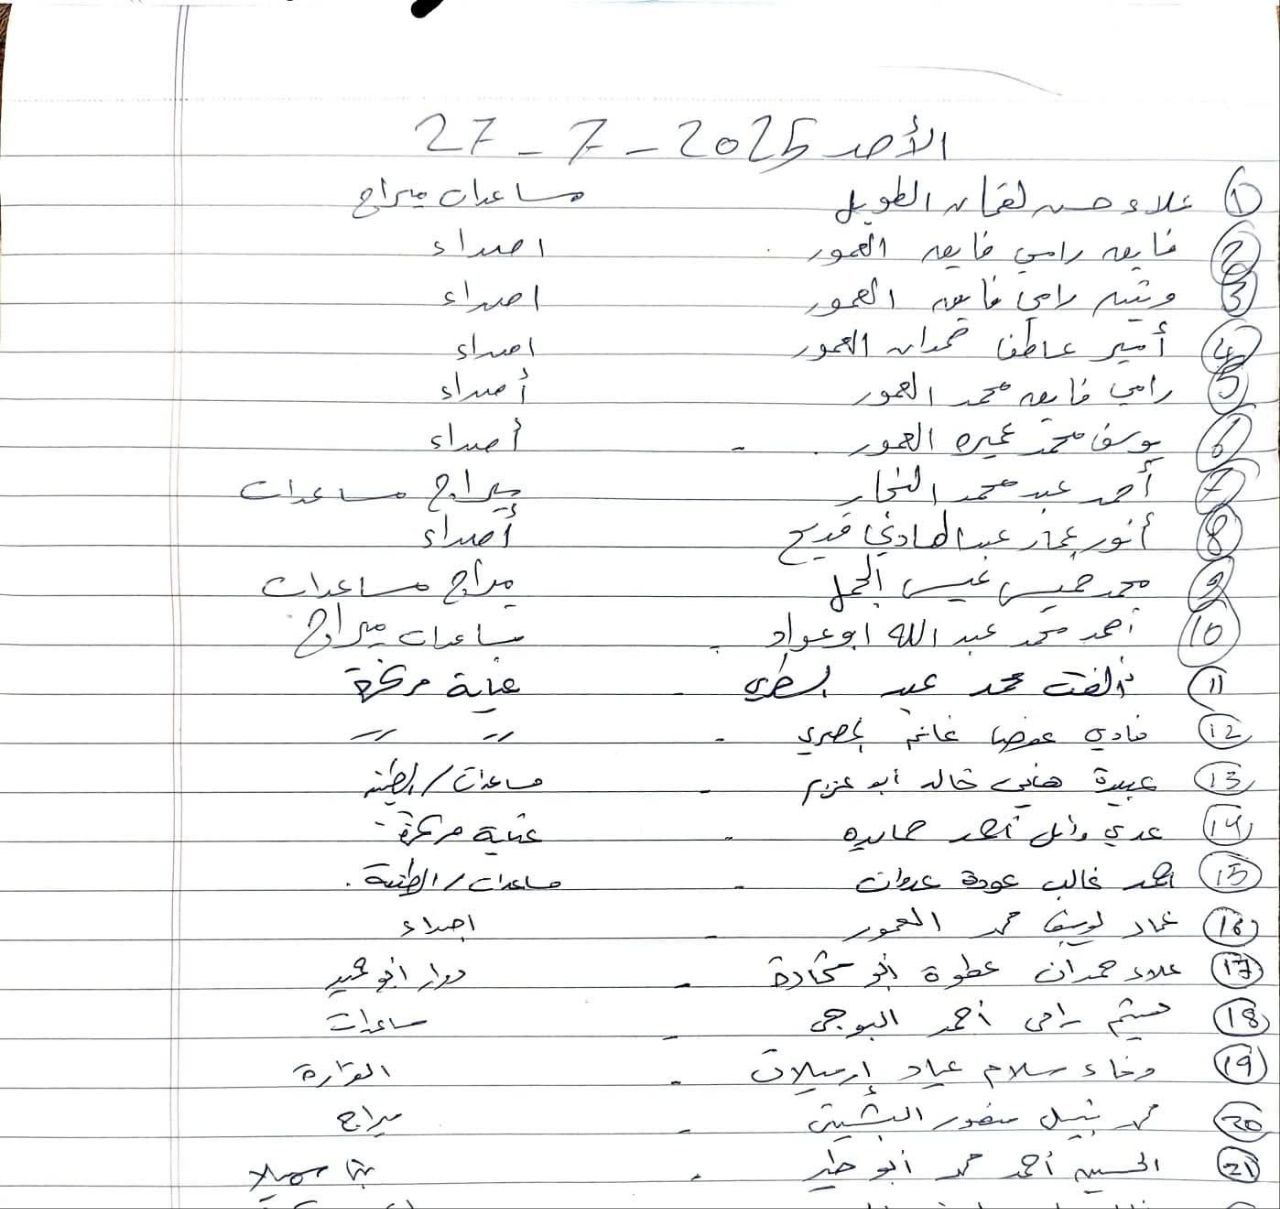 الأحد 2025 - 7 - 27
1 علاء حسن لقمان الطويل مساعدات ميراج
2 فايق رامي فايق العمور اصداء
3 رامي فايق العمور اصداء
4 أمير عاطف حمدان العمور اصداء
5 رامي فايق محمد العمور أصداء
6 يوسف محمد عميره العمور - أصداء
7 أحمد عبد محمد النجار ميراج مساعدات
8 أنور عمار عبد الهادي قديح أصداء
9 محمد خميس الجمل ميراج مساعدات
10 أحمد محمد عبد الله ابو عواد - مساعدات ميراج
11 ألفت محمد عبد - عناية مركزة
12 فادي عوض غانم المصري - 〃 〃
13 عبيدة هاني خالد أبو عزوم - مساعدات / الطينة
14 عدي وائل أحمد - عناية مركزة
15 احمد غالب عودة عدوان - مساعدات / الطينة .
16 عماد محمد العمور - اصداء
17 علاء حمدان عطوة أبو شحادة - دوار ابو حميد
18 هيثم رامي أحمد البوجي - مساعدات
19 وفاء سلام عياد إرميلات - القرارة
20 محمد نبيل منصور البشيتي - ميراج
21 الحسين أحمد محمد أبو طير - بنا سهيلا